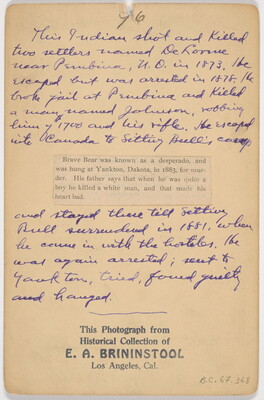 96
This Indian shot and killed
two settlers named DeLorme
near Pembina, N.D. in 1873. He
escaped but was arrested in 1878. He
broke jail at Pembina and killed
a many named Johnson, robbing
him of 1700 and his rifle. He escaped
into Canada to Sitting Bull's camp
Brave Bear was known as a desperado, and
was hung at Yankton, Dakota, in 1883, for mur-
der. His father says that when he was quite a
boy he killed a white man, and that made his
heart bad.
and stayed there till Sitting
Bull surrendered in 1881, when
he came in with the hostiles. He
was again arrested; sent to
Yankton, tried, found guilty
and hanged.
This Photograph from
Historical Collection of
E. A. BRININSTOOL
Los Angeles, Cal.
B.C. 67.368